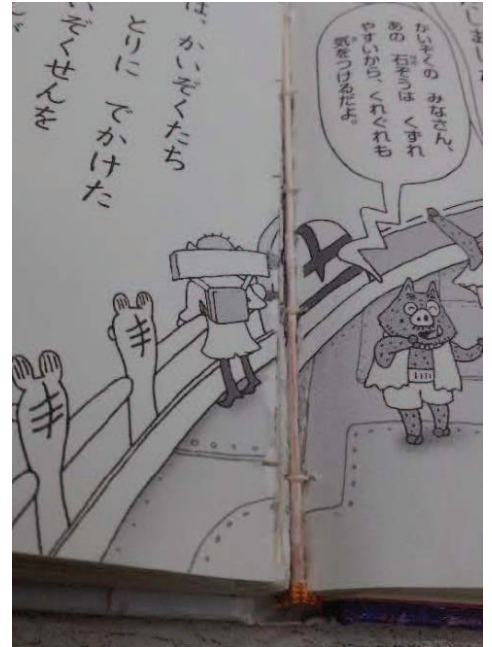 かいぞくの みなさん、
あの 石ぞうは くずれ
やすいから、くれぐれも
気をつけるだよ。
は、かいぞくたち
とりに でかけた
いぞくせんを